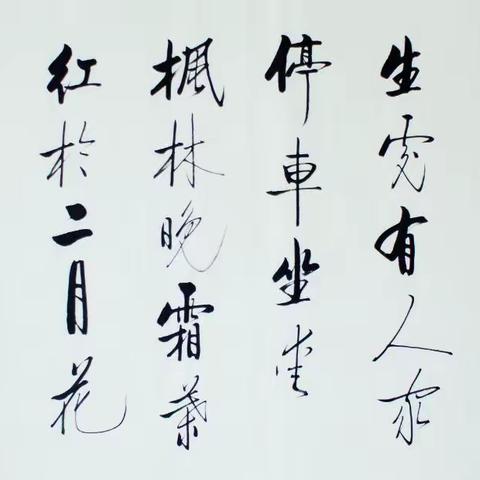 生處有人家
停車坐愛
楓林晚霜葉
紅於二月花